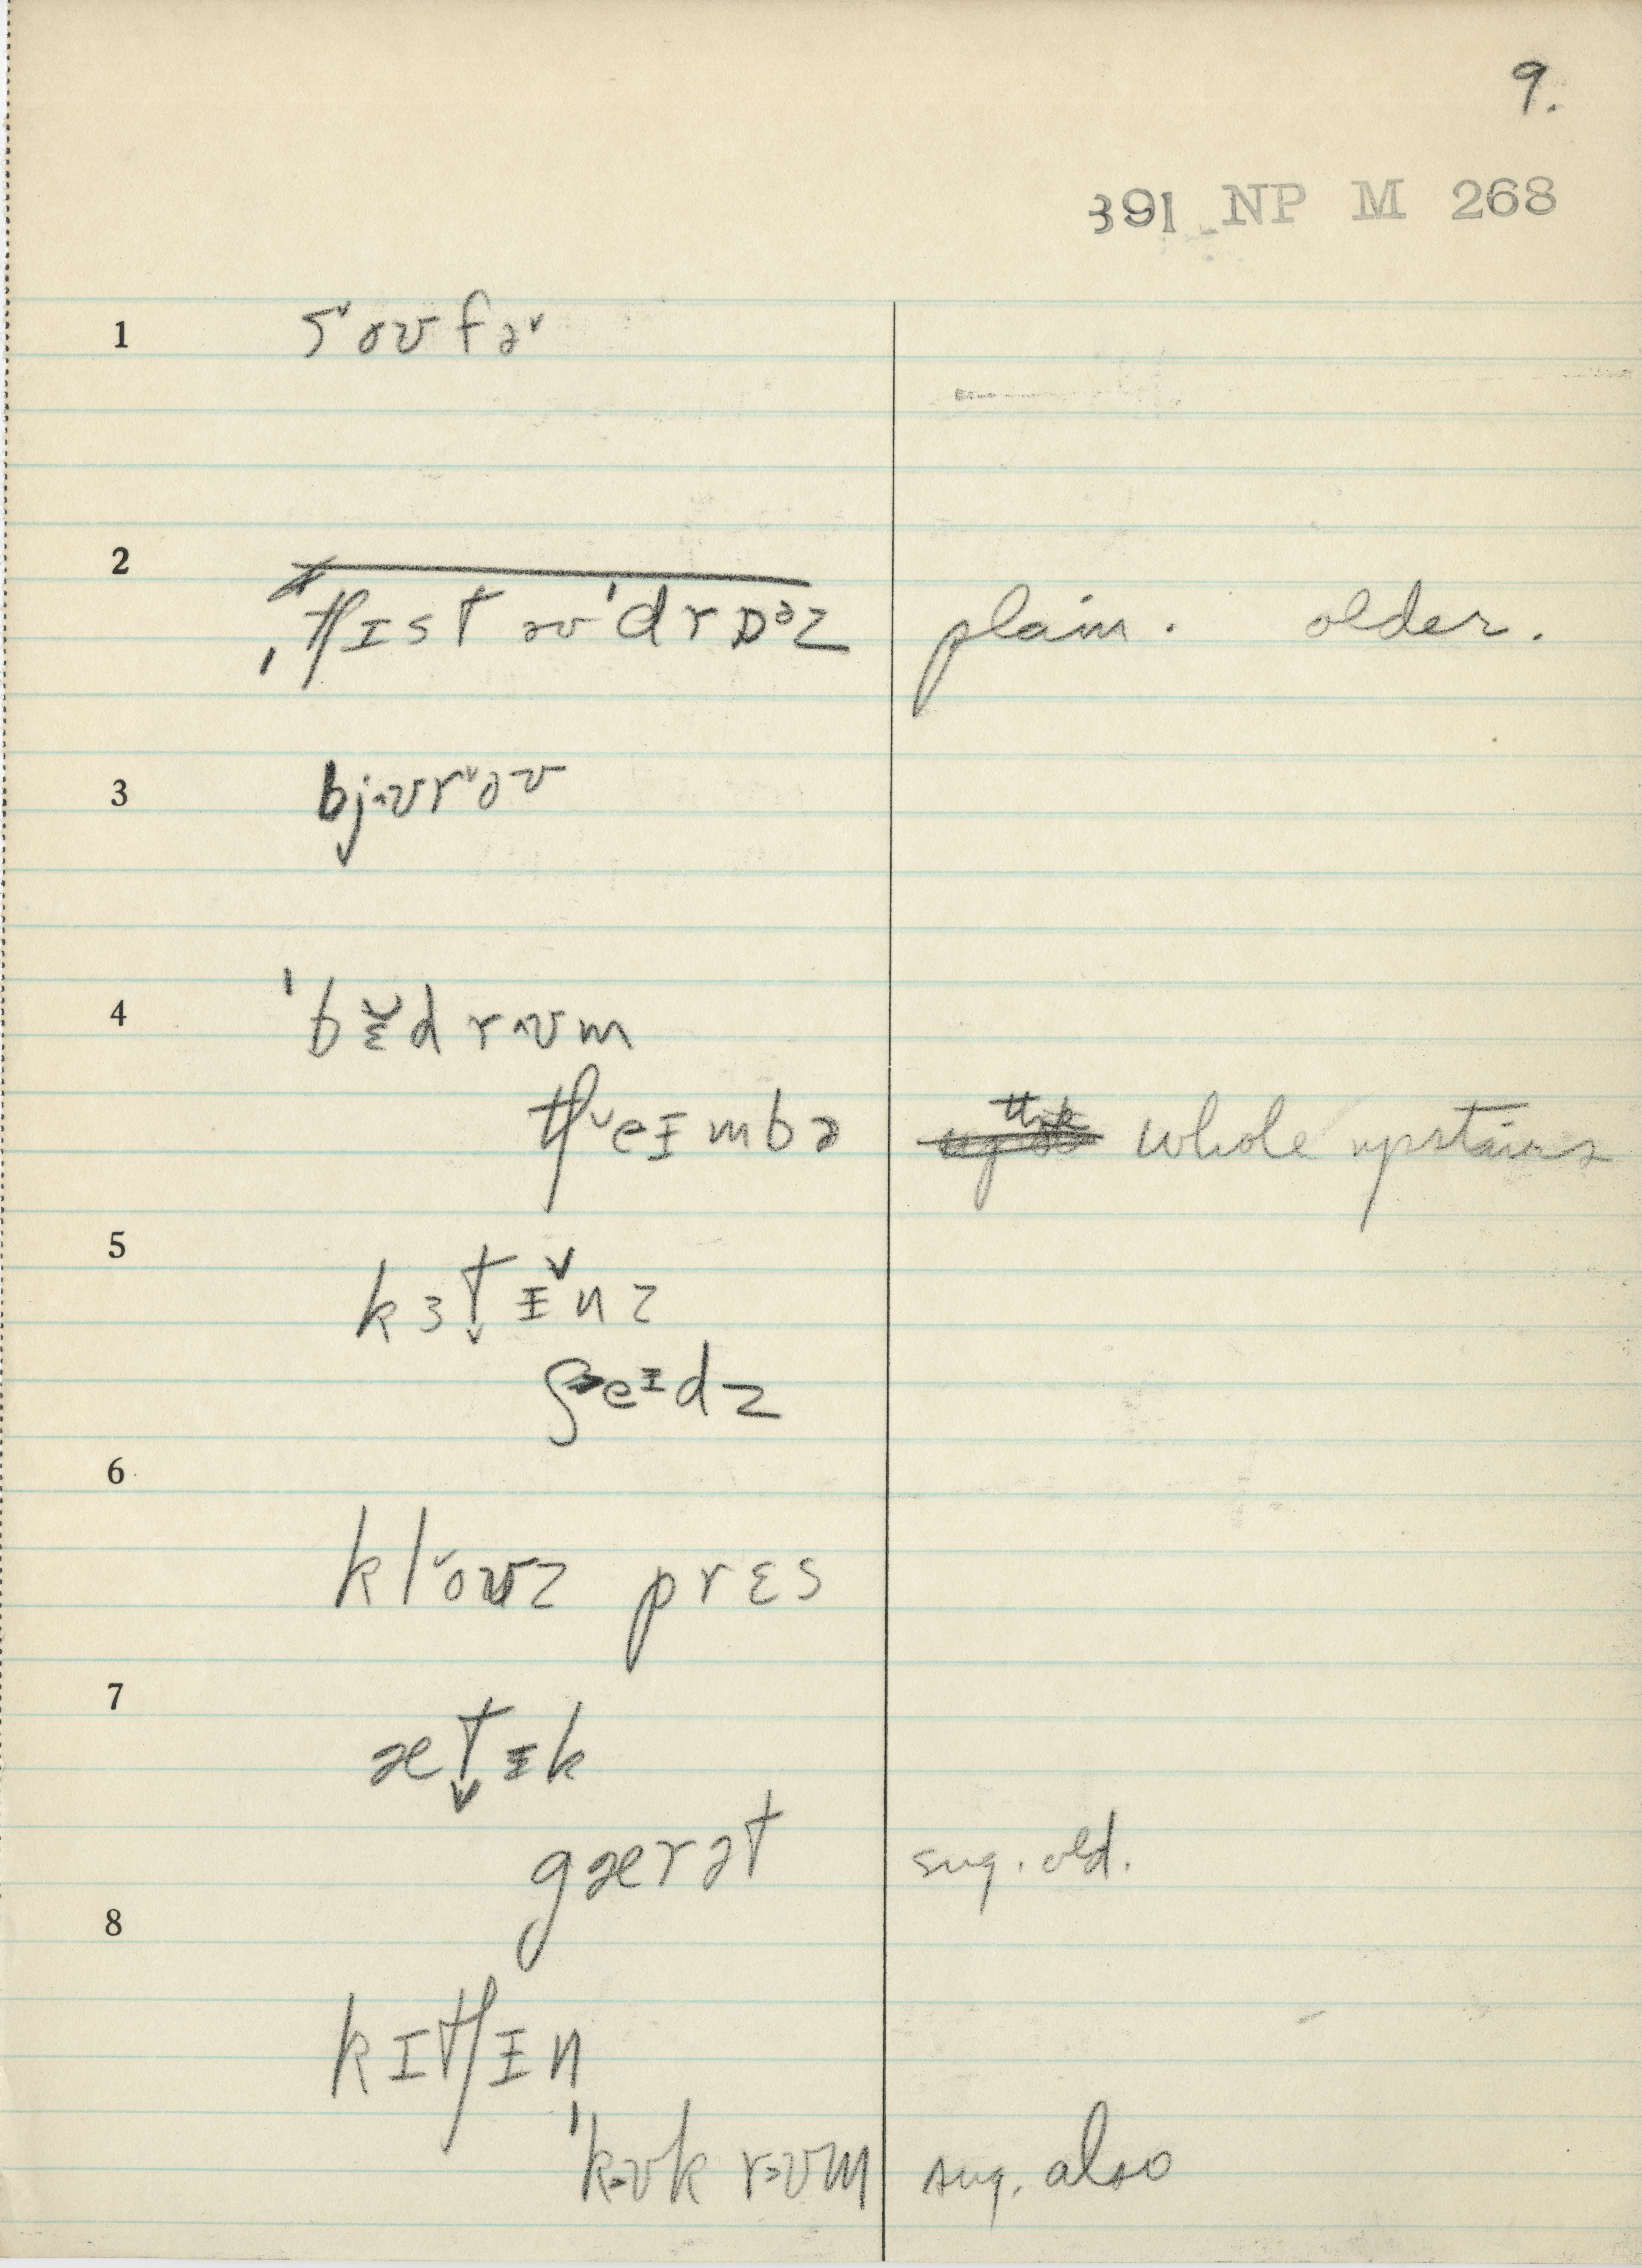 9.
391 NP M 268
1 s˅oʊfə˅
2 ˌtʃɪst əʊˈdrɒᵊz plain. older.
3 bjʊr˅oʊ
4 ˈbɛ̆drʊm
tʃ˅eɪmbə whole upstairs
5 kɜt̬ɪ̆nz
ʃeɪdz
6 kl˅oʊz prɛs
7 æt̬ɪk
gærət sug. old.
8 kɪtʃɪn
ˈkʊk rʊm sug. also